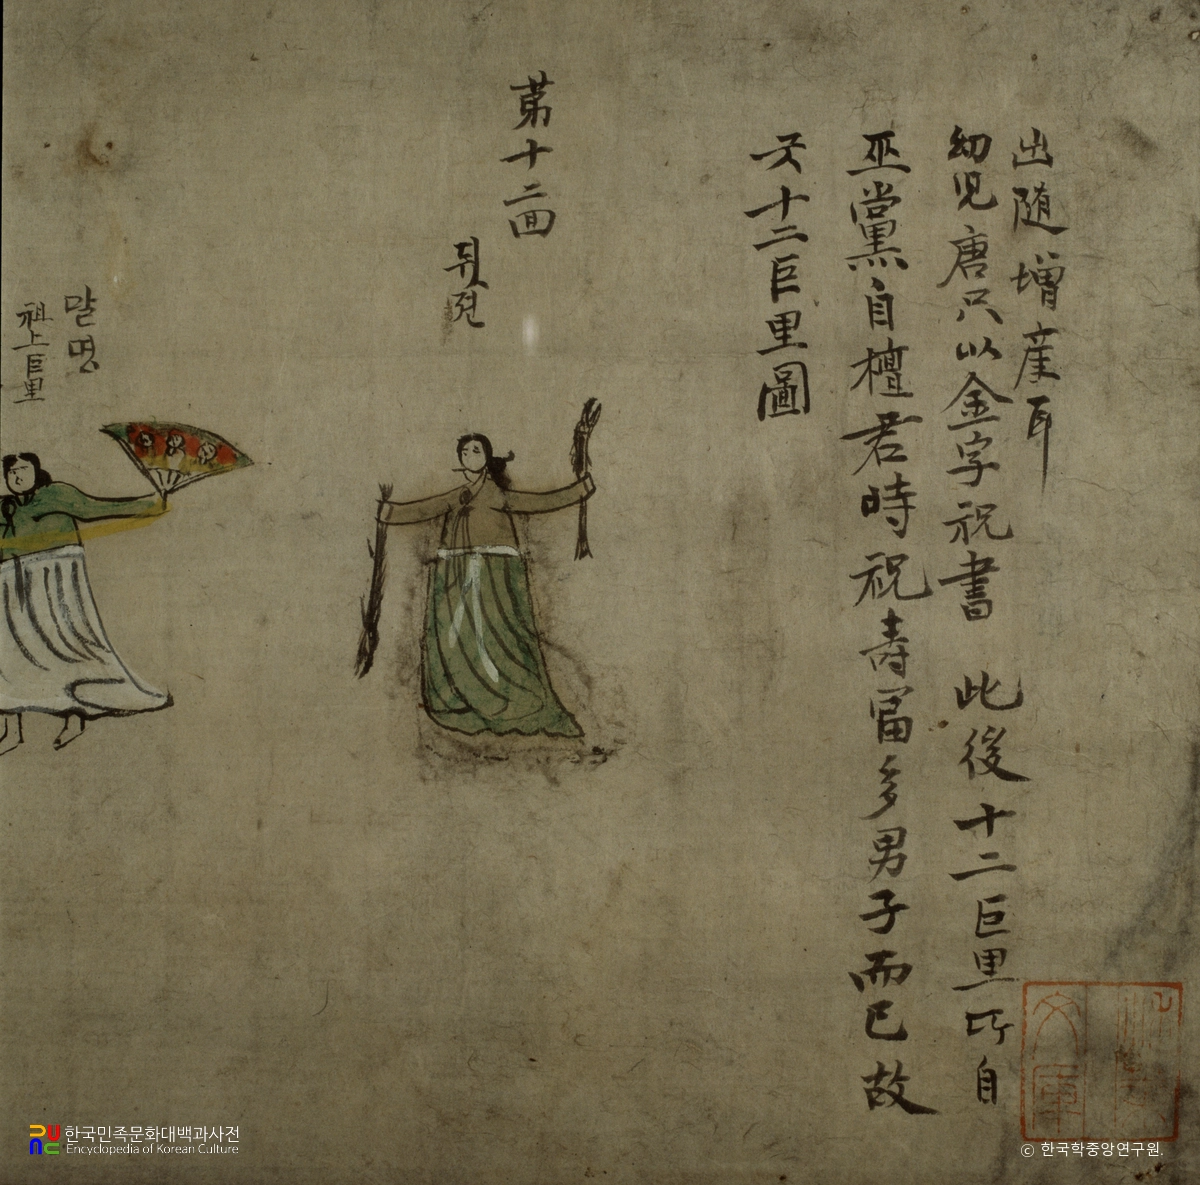 말명
祖上巨里
뒤젼
第十二面
굿十二巨里圖
巫黨自檀君時祝壽富多男子而已故
幼児唐只以金字祝書 此後十二巨里所自
出随增産耳
한국민족문화대백과사전
Encyclopedia of Korean Culture
© 한국학중앙연구원.